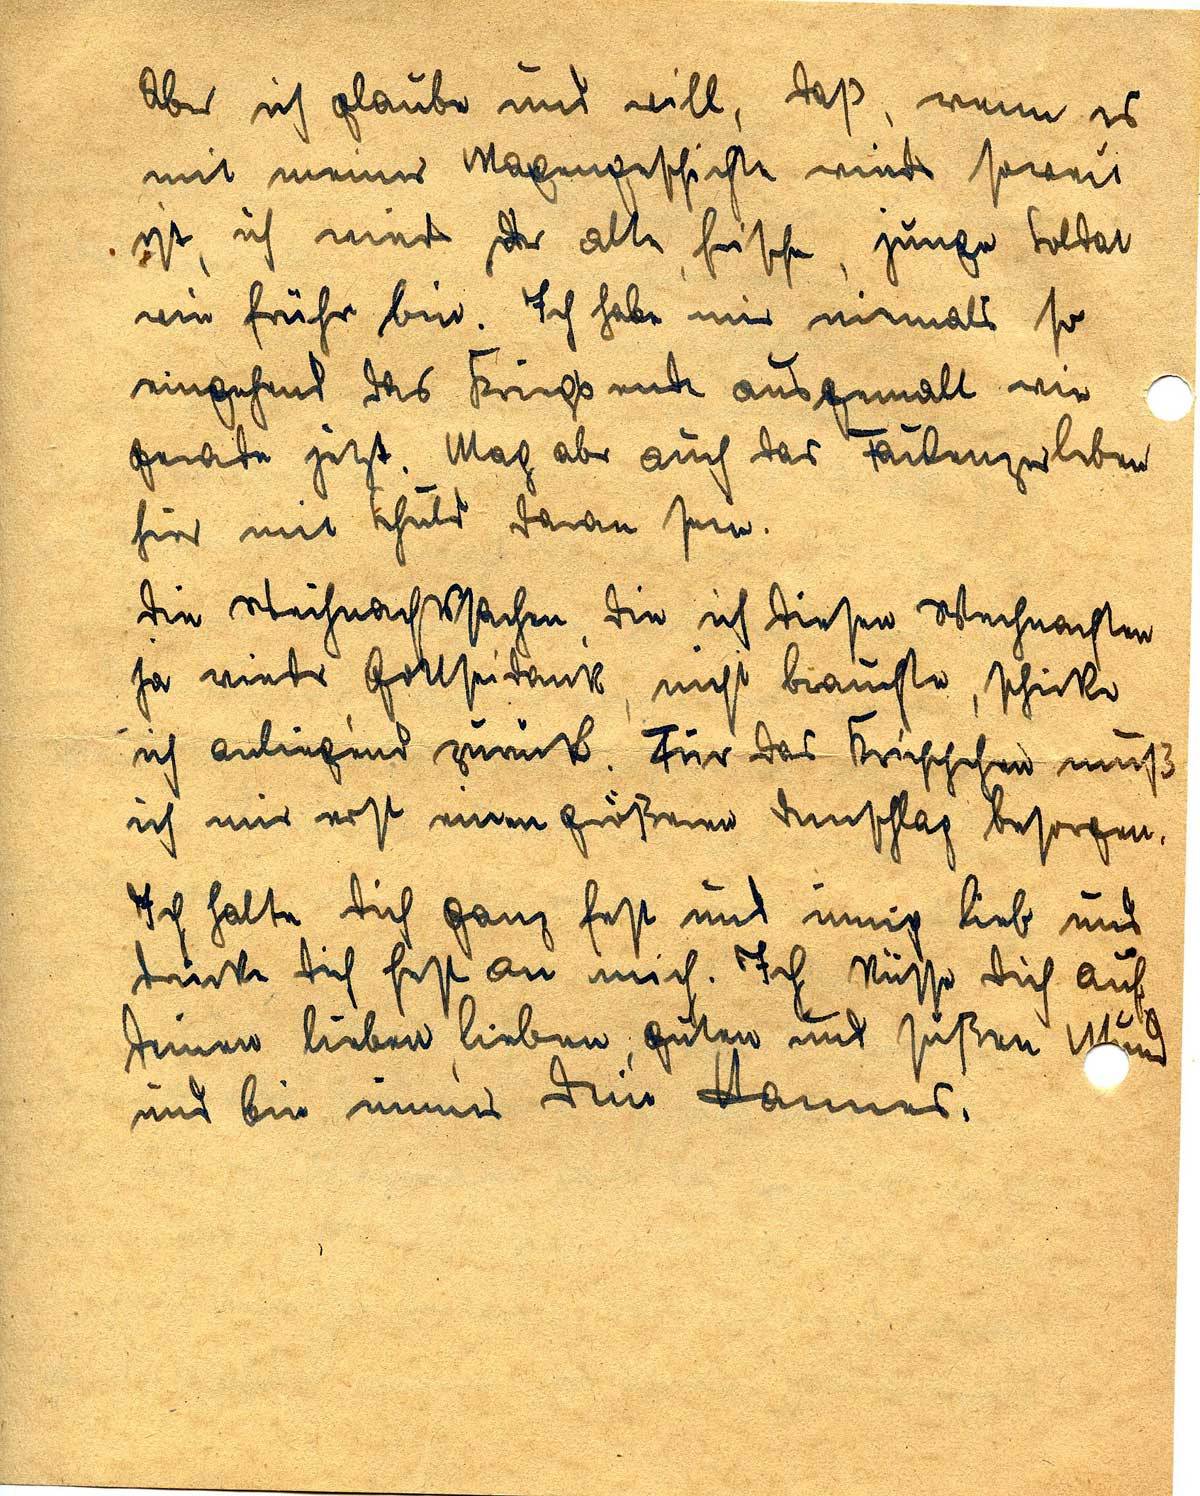 Aber ich glaube und will, daß, wenn es
mit meiner Magengeschichte wieder soweit
ist, ich wieder der alte, frische, junge Soldat
wie früher bin. Ich habe mir niemals so
eingehend das Kriegsende ausgemalt wie
gerade jetzt. Mag aber auch das Faulenzerleben
hier mit Schuld daran sein.
Die Weihnachtssachen, die ich diesen Weihnachten
ja wieder Gottseidank, nicht brauchte, schicke
ich anliegend zurück. Für das
muß
ich mir erst einen größeren Umschlag besorgen.
Ich halte Dich ganz fest und innig lieb und
drücke Dich fest an mich. Ich küsse Dich auf
Deinen lieben, lieben, guten und süßen Mund
und bin immer Dein Hannes.